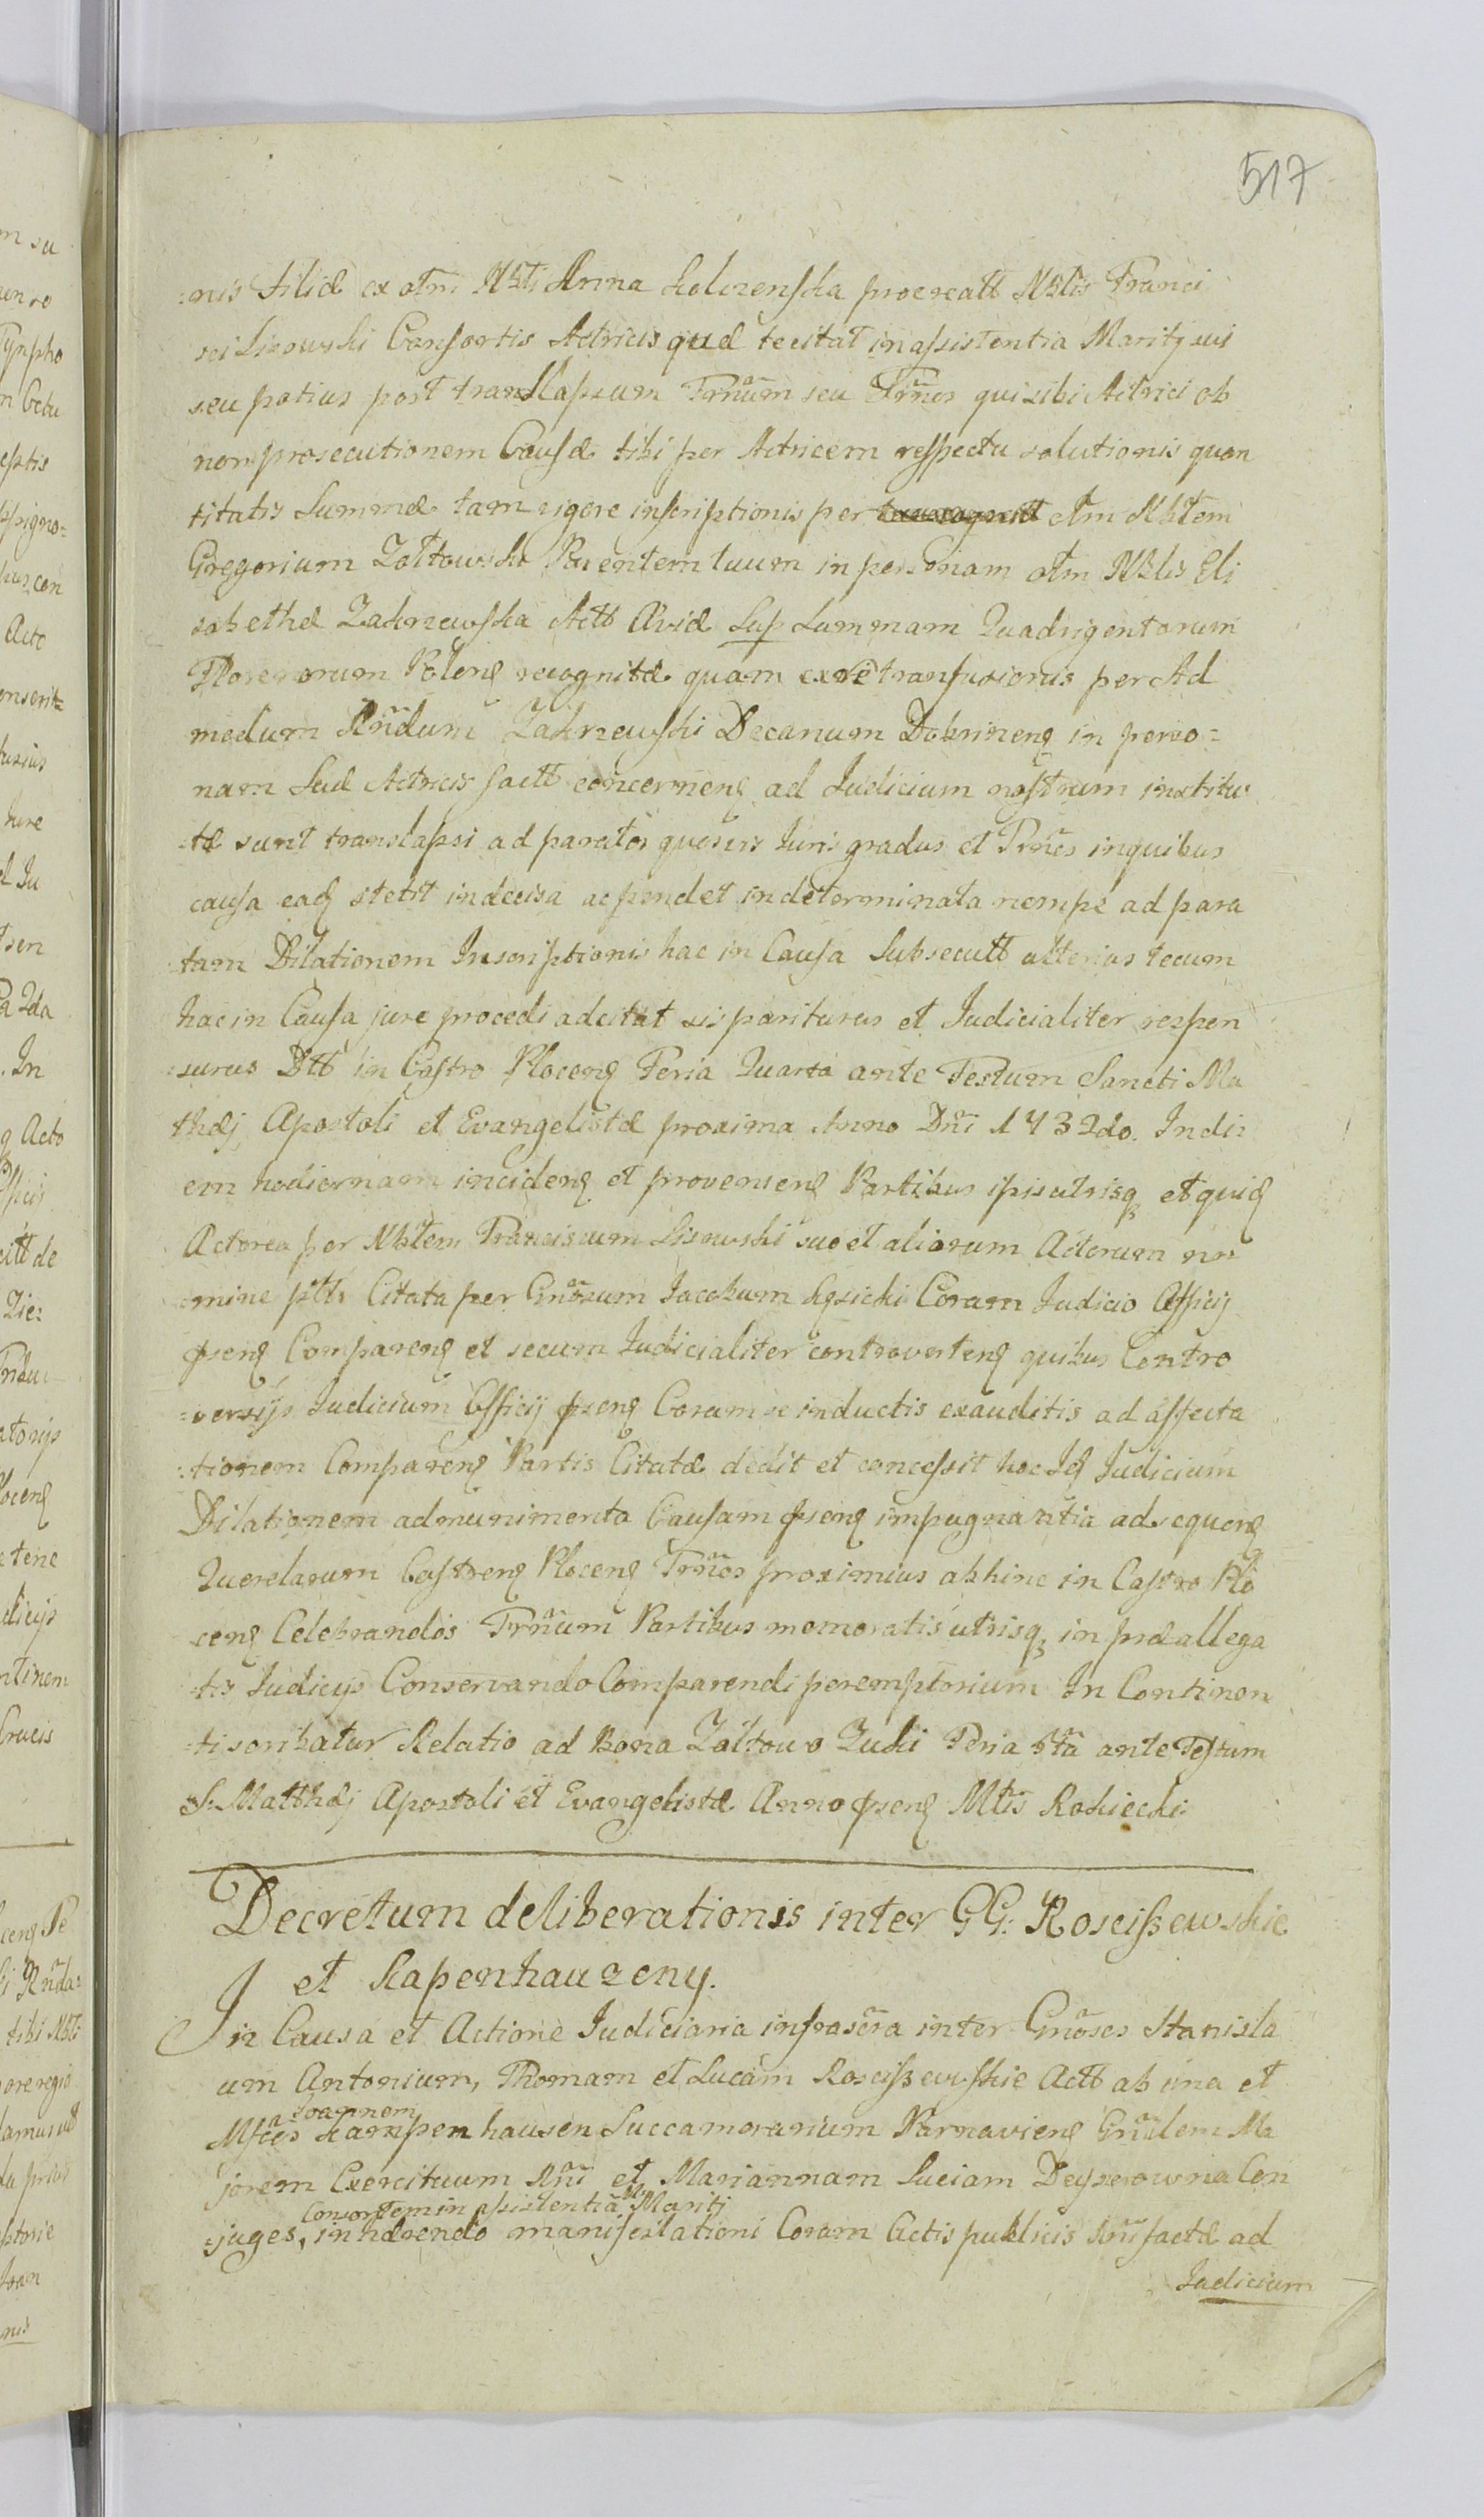 517
:nis Filiæ ex olm Nbli Anna Kolczenska procreatt Nblis Franci
sci Lisowski Consortis Actricis quæ te citat in assistentia Mariti sui
seu potius post translapsum Trnũm seu Trños qui sibi Actrici ob
non prosecutionem Causæ tibi per Actricem respectu solutionis quan
titatis Summæ tam vigore inscriptionis per olm Nblem
Gregorium Zołtowski Parentem tuum in personam olm Nblis Eli
sabethæ Zakrzewska Actt Aviæ Sup Summam Quadrigentorum
Florenorum Polonꝗ recognitæ quam ex vi transfusionis per Ad
modum Rñdum Zakrzewski Decanum Dobrinenꝗ in perso=
nam Suæ Actricis factt concernenꝗ ad Judicium nostrum institu
tæ sunt translapsi ad paratos quosvis Juris gradus et Trños in quibus
causa eadꝗ stetit indecisa ac pendet indeterminata nempe ad para
tam Dilationem Inscriptionis hac in Causa Subsecutt ulterius tecum
hac in Causa jure procedi adcitat sis pariturus et Judicialiter respon
:surus Dtt in Castro Plocenꝗ Feria Quarta ante Festum Sancti Ma
thæj Apostoli et Evangelistæ proxima Anno Dñi 1732do. In di:
em hodiernam incidenꝗ et provenienꝗ Partibus ipsis utrisqꝫ et quidꝗ
Actorea per Nblem Franciscum Lisowski suo et aliorum Actorum no
:mine ptti Citata per Gnõsum Jacobum Kęsicki Coram Judicio Officij
pñsenꝗ Comparenꝗ et secum Judicialiter controvertenꝗ quibus Contro
:versijs Judicium Officij pñsenꝗ Coram se inductis exauditis ad affecta
:tionem Comparenꝗ Partis Citatæ dedit et concessit hoc Idꝗ Judicium
Dilationem ad munimenta Causam pñsenꝗ impugnantia ad sequenꝗ
Querelarum Castrenꝗ Plocenꝗ Trños proximius abhinc in Castro Plo
cenꝗ Celebrandos Trnũm Partibus memoratis utrisqꝫ in præallega
:tis Judicijs Conservando Comparendi peremptorium In Continen
:ti scribatur Relatio ad Bona Zołtowo Zuki Feria 4ta ante Festum
S: Matthæj Apostoli et Evangelistæ Anno pñsenꝗ Mtis Rokiecki
Decretum deliberationis inter GG: Rosciszewskie
et Kapenhauzeny.
In Causa et Actione Judiciaria infrascra inter Gnõsos Stanisla
um Antonium, Thomam et Lucam Rosciszewskie Actt ab una et
Joannem
Mfcos Kampenhausen Succamerarium Parnavienꝗ Gnãlem Ma
jorem Exercituum Rñi et Mariannam Luciam Deyzerowna Con
Consortem in assistentia Mariti
:juges, inhærendo manifestationi Coram Actis publicis Rñi factæ ad
Judicium